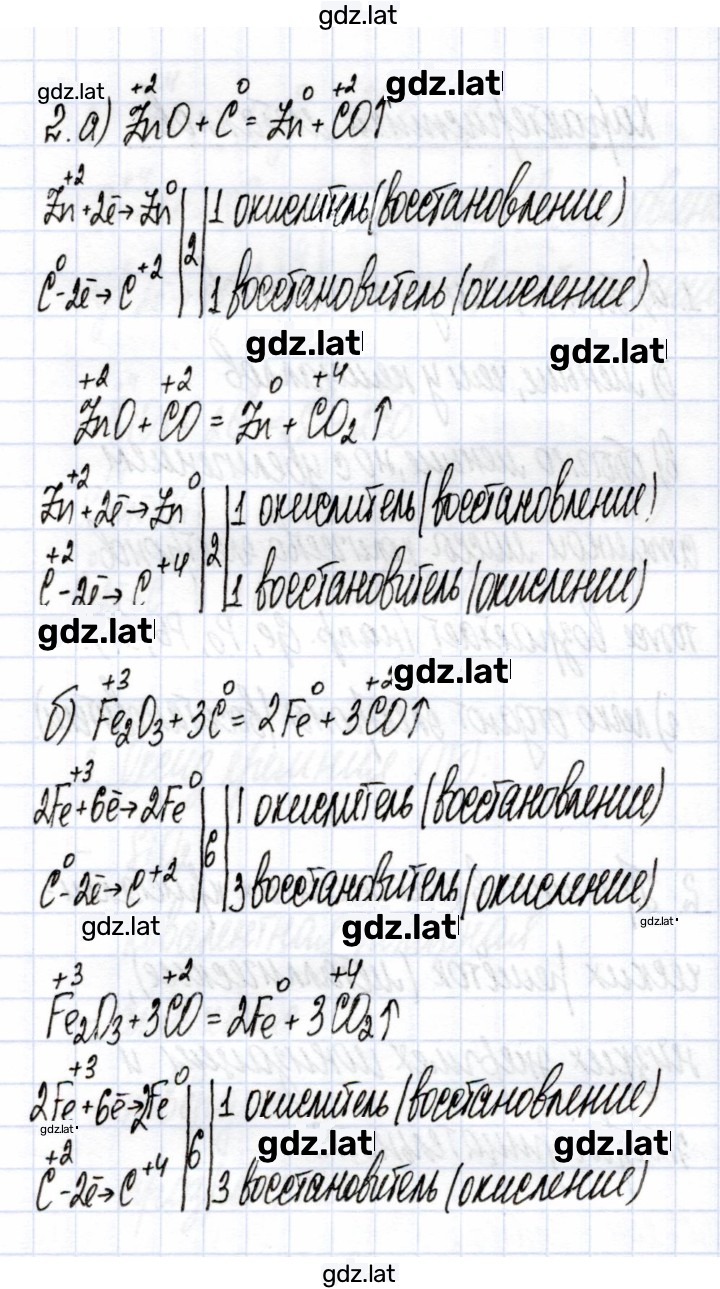 gdz.lat
gdz.lat +2 0 0 +2 gdz.lat
2. а) ZnO + C = Zn + CO↑
+2 0
Zn + 2ē → Zn | 1 окислитель (восстановление)
2
0 +2
C - 2ē → C | 1 восстановитель (окисление)
gdz.lat gdz.lat
+2 +2 0 +4
ZnO + CO = Zn + CO₂↑
+2 0
Zn + 2ē → Zn | 1 окислитель (восстановление)
2
+2 +4
C - 2ē → C | 1 восстановитель (окисление)
gdz.lat
gdz.lat
+3 0 0 +2
б) Fe₂O₃ + 3C = 2Fe + 3CO↑
+3 0
2Fe + 6ē → 2Fe | 1 окислитель (восстановление)
6
0 +2
C - 2ē → C | 3 восстановитель (окисление)
gdz.lat gdz.lat gdz.lat
+3 +2 0 +4
Fe₂O₃ + 3CO = 2Fe + 3CO₂↑
+3 0
2Fe + 6ē → 2Fe | 1 окислитель (восстановление)
gdz.lat 6 gdz.lat gdz.lat
+2 +4
C - 2ē → C | 3 восстановитель (окисление)
gdz.lat